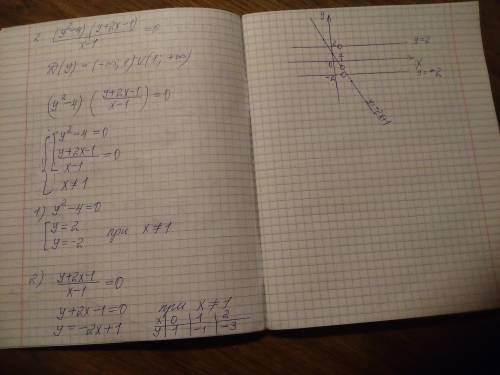 2. (y²-4)(y+2x-1)/(x-1) = 0
D(y) = (-∞; 1) ∪ (1; +∞)
(y²-4) ((y+2x-1)/(x-1)) = 0
{ [ y²-4=0
(y+2x-1)/(x-1) = 0
x≠1
1) y²-4=0
[ y=2
y=-2 при x≠1
2) (y+2x-1)/(x-1) = 0
y+2x-1=0 при x≠1
y=-2x+1
x 0 1 2
y 1 -1 -3
y
y=2
2
1
x
0
y=-2
-2
y=-2x+1